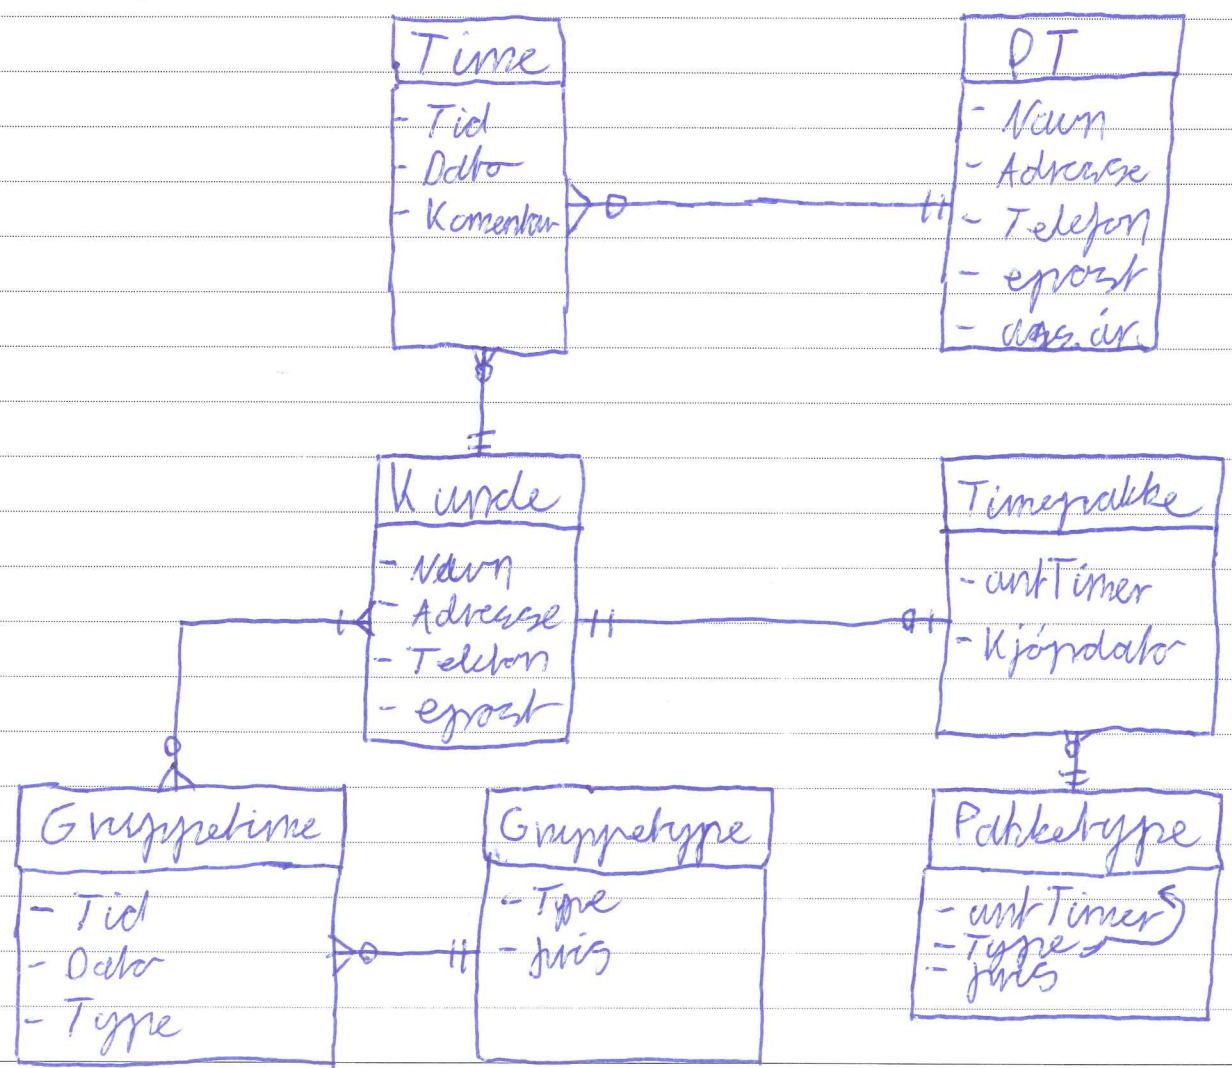 Time
- Tid
- Dato
- Komentar
PT
- Navn
- Adresse
- Telefon
- epost
- ans.år.
Kunde
- Navn
- Adresse
- Telefon
- epost
Timepakke
- antTimer
- Kjøpdato
Gruppetime
- Tid
- Dato
- Type
Gruppetype
- Type
- pris
Pakketype
- antTimer
- Type
- pris